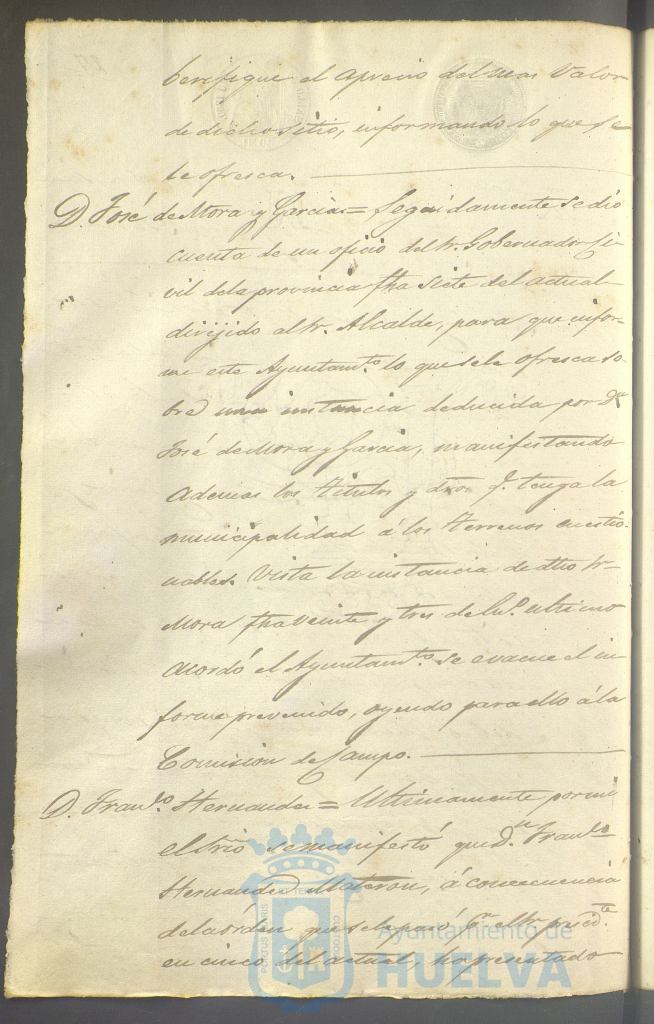 berifique el aprecio del mas valor
de dicho sitio, informando lo que se
le ofresca.
D. José de Mora y Garcia = Seguidamente se dió
cuenta de un oficio del Sr. Gobernador Ci-
vil de la provincia fha siete del actual
dirijido al Sr. Alcalde, para que infor-
me este Ayuntamto. lo que se le ofresca so-
bre una instancia deducida por Dn
José de Mora y Garcia, manifestando
Ademas los titulos y dros. q. tenga la
municipalidad á los terrenos cuestio-
nables. Vista la instancia de dho Sr
Mora fha veinte y tres de ultimo
Acordó el Ayuntamto. se evacue el in
forme prevenido, oyendo para ello á la
Comision de Campo.
D. Franco. Hernandez = Ultimamente por mi
el Srio se manifestó que Dn. Franco.
Hernandez Materon, á concecuencia
de la órden que se le pasó pr. el Sr. presidte
en cinco del actual, ha presentado
Ayuntamiento de
HUELVA